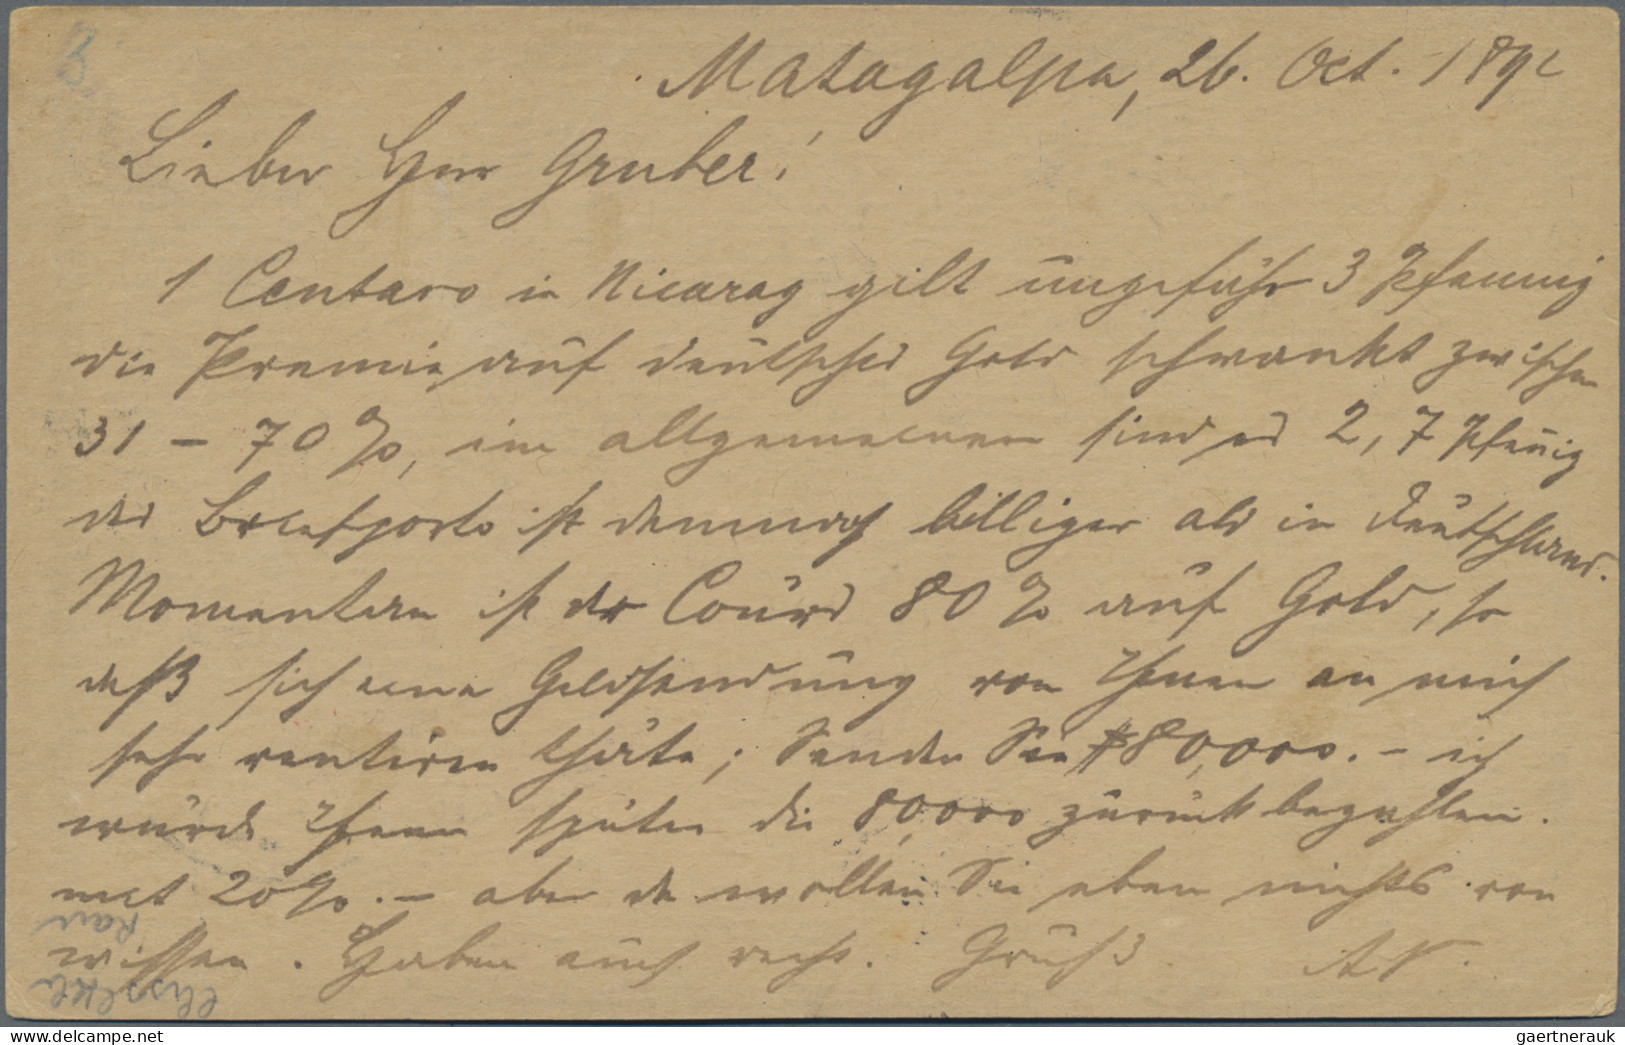 Matagalpa, 26. Oct. 189
Lieber Herr Gruber!
1 Centavo in Nicarag gilt ungefähr 3 Pfennig
die Premie auf deutsches Gold schwankt zwischen
31 – 70 %, im allgemeinen sind es 2,7 Pfenig
das Briefporto ist demnach billiger als in Deutschland.
Momentan ist der Cours 80 % auf Gold, so
daß sich eine Geldsendung von Ihnen an mich
sehr rentiren thäte; Senden Sie $80,000. – ich
würde Ihnen später die 80,000 zurückbezahlen.
mit 20%. – aber da wollen Sie eben nichts von
wissen. Haben auch recht. Gruß
gaertnerauk